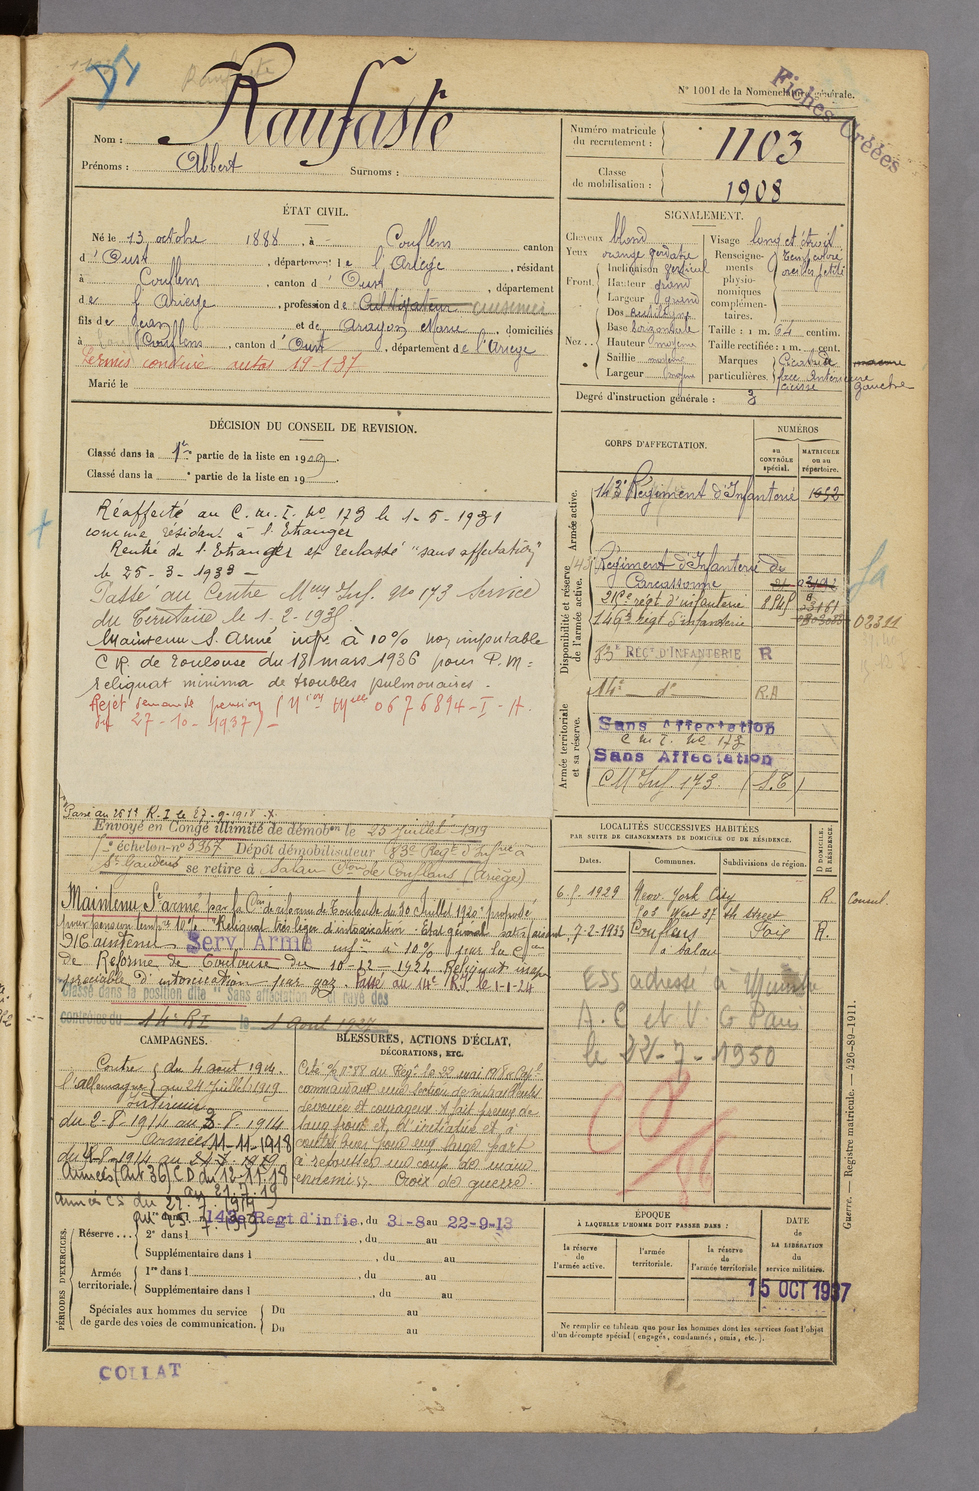 N° 1001 de la Nomenclature générale.
Fiches Créées
Nom : Raufaste
Prénoms : Albert Surnoms :
Numéro matricule du recrutement : 1103
Classe de mobilisation : 1908
ÉTAT CIVIL.
Né le 13 octobre 1888, à Couflens canton
d'Oust, département de l'Ariège, résidant
à Couflens, canton d'Oust, département
de l'Ariège, profession de Cultivateur cuisinier
fils de Jean et de Aragon Marie, domiciliés
à Couflens, canton d'Oust, département de l'Ariège
Permis conduire autos 19-1-37
Marié le
SIGNALEMENT.
Cheveux blond
Yeux orange verdatre
Front Inclinaison vertical
Hauteur grand
Largeur grand
Nez Dos rectiligne
Base horizontale
Hauteur moyenne
Saillie moyenne
Largeur moyen
Visage long et étroit
Renseignements physionomiques complémentaires.
oreilles petites
Taille : 1 m. 64 centim.
Taille rectifiée : 1 m. cent.
Marques particulières. Cicatrice
face antérieure
cuisse gauche
Degré d'instruction générale : 3
DÉCISION DU CONSEIL DE REVISION.
Classé dans la 1re partie de la liste en 1909.
Classé dans la partie de la liste en 19
Réaffecté au C. M. I. No 173 le 1-5-1931
comme résidant à l'Etranger
Rentré de l'Etranger et reclassé "sans affectation"
le 25-3-1933
Passé au Centre Mem Inf. No 173 Service
du Territoire le 1-2-193
Maintenu S. Armé infre à 10% non imputable
C R. de Toulouse du 18 mars 1936 pour P.M :
reliquat minima de troubles pulmonaires.
Rejet demande pension (Mion Melle 0676894-I-H.
du 27-10-1937)
CORPS D'AFFECTATION.
NUMÉROS
au CONTRÔLE spécial.
MATRICULE ou au répertoire.
Armée active.
143e Régiment d'Infanterie 1052
Disponibilité et réserve de l'armée active.
143 Régiment d'Infanterie de
Carcassonne
216e régt d'infanterie
146e régt d'infanterie
02311
83e RÉGt D'INFANTERIE R
Armée territoriale et sa réserve.
14e d° R.A
Sans Affectation
C M I. No 173
Sans Affectation
C M Inf. 173 (S.T)
Passé au 261e R.I le 27-9-1918
Envoyé en Congé illimité de démobon le 25 Juillet 1919
échelon no 5367 Dépôt démobilisateur 83e Regt d'Infrie à
St Gaudens se retire à Salau Con de Couflens (Ariège)
Maintenu St armé par la Con de réforme de Toulouse du 30 Juillet 1920 proposé
pour pension tempre 10% Reliquat très léger d'intoxication. Etat général satisfaisant
Maintenu Serv. Armé infre à 10% par la Con
de Réforme de Toulouse du 10-12-1924 Reliquat inap
préciable d'intoxication par gaz. Passé au 14e R.I. le 1-1-24
Classé dans la position dite "Sans affectation" et rayé des
contrôles du 14e R I le 1 Aout 1927
LOCALITÉS SUCCESSIVES HABITÉES
PAR SUITE DE CHANGEMENTS DE DOMICILE OU DE RÉSIDENCE.
Dates. Communes. Subdivisions de région. D DOMICILE. R RÉSIDENCE.
1929 New York City R. Consul.
West 37 th Street
7-2-1933 Couflens Foix R.
à Salau
ESS adressé à
A. C et V. G Paris
le 22-7-1950
CAMPAGNES.
Contre l'Allemagne du 4 août 1914.
au 24 Juillet 1919
Intérieur
du 2-8-1914 au 3-8-1914
Armées 11-11-1918
du 4-8-1914 au
Années (Art 36) CD du 12-11-18
au 21.7.19
BLESSURES, ACTIONS D'ÉCLAT,
DÉCORATIONS, ETC.
Cité No 88 du Régt le 22 mai 1918
commandant une section de mitrailleuses
dévoué et courageux a fait preuve de
sang froid et d'initiative et a
contribué pour une large part
à repousser un coup de main
ennemi. Croix de guerre.
PÉRIODES D'EXERCICES.
Réserve... 1re dans 143e Regt d'infie, du 31-8 au 22-9-13
2e dans l , du au
Supplémentaire dans l , du au
Armée territoriale. 1re dans l , du au
Supplémentaire dans l , du au
Spéciales aux hommes du service de garde des voies de communication. Du au
Du au
ÉPOQUE
À LAQUELLE L'HOMME DOIT PASSER DANS :
la réserve de l'armée active.
l'armée territoriale.
la réserve de l'armée territoriale
DATE de LA LIBÉRATION du service militaire.
15 OCT 1937
Ne remplir ce tableau que pour les hommes dont les services font l'objet
d'un décompte spécial (engagés, condamnés, omis, etc.).
Guerre. — Registre matricule. — 426-89-1911.
COLLAT